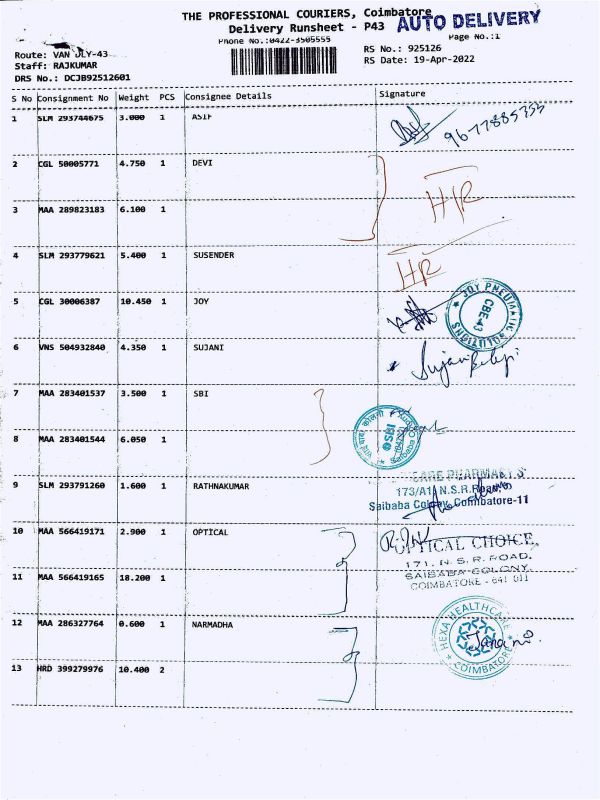 THE PROFESSIONAL COURIERS, Coimbatore
AUTO DELIVERY
Delivery Runsheet - P43
Phone No.:0422-3505555
Page No.:1
Route: VAN DLY-43
Staff: RAJKUMAR
DRS No.: DCJB92512601
RS No.: 925126
RS Date: 19-Apr-2022
S No Consignment No Weight PCS Consignee Details Signature
1 SLM 293744675 3.000 1 ASIF
2 CGL 50005771 4.750 1 DEVI
HR
3 MAA 289823183 6.100 1
4 SLM 293779621 5.400 1 SUSENDER
HR
5 CGL 30006387 10.450 1 JOY
JOY PNEUMATIC SOLUTIONS
CBE-43
6 VNS 504932840 4.350 1 SUJANI
7 MAA 283401537 3.500 1 SBI
8 MAA 283401544 6.050 1
Saibaba Colony
9 SLM 293791260 1.600 1 RATHNAKUMAR
CARE PHARMACY
173/A1, N.S.R.Road,
Saibaba Colony, Coimbatore-11
10 MAA 566419171 2.900 1 OPTICAL
OPTICAL CHOICE,
171, N. S. R. ROAD,
SAIBABA COLONY,
COIMBATORE - 641 011
11 MAA 566419165 18.200 1
12 MAA 286327764 0.600 1 NARMADHA
HEXA HEALTHCARE
COIMBATORE
13 HRD 399279976 10.400 2